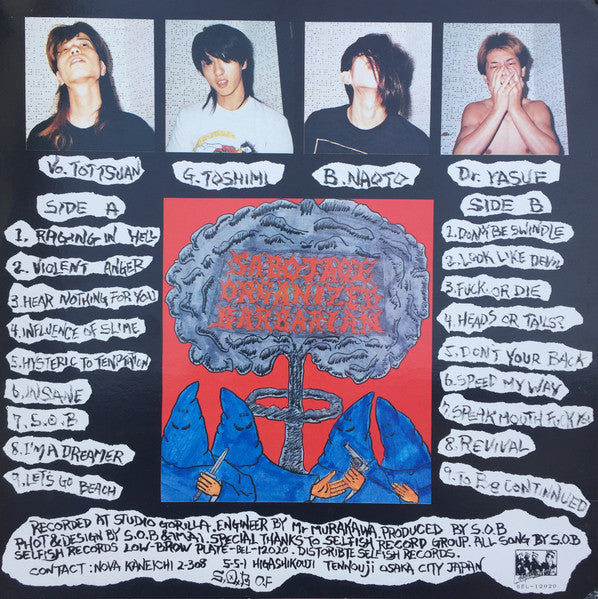 Vo. TOTTSUAN
G. TOSHIMI
B. NAOTO
Dr. YASUE
SIDE A
1. RAGING IN HELL
2. VIOLENT ANGER
3. HEAR NOTHING FOR YOU
4. INFLUENCE OF SLIME
5. HYSTERIC TO TENPTATION
6. INSANE
7. S.O.B
8. I'M A DREAMER
9. LET'S GO BEACH
SABOTAGE
ORGANIZED
BARBARIAN
SIDE B
1. DON'T BE SWINDLE
2. LOOK LIKE DEVIL
3. FUCK OR DIE
4. HEADS OR TAILS?
5. DON'T YOUR BACK
6. SPEED MY WAY
7. SPEAK MOUTH
8. REVIVAL
9. TO BE CONTINNUED
RECORDED AT STUDIO GORILLA. ENGINEER BY Mr MURAKAWA, PRODUCED BY S.O.B
PHOT & DESIGN BY S.O.B & IMAI. SPECIAL THANKS TO SELFISH RECORD GROUP. ALL SONG BY S.O.B
SELFISH RECORDS LOW-BROW PLATE-BEL-12020. DISTORIBTE SELFISH RECORDS.
CONTACT: NOVA KANEICHI 2-308 5-5-1 HIGASHIKOUJI TENNOUJI OSAKA CITY JAPAN
S.O.B OF
BEL-12020